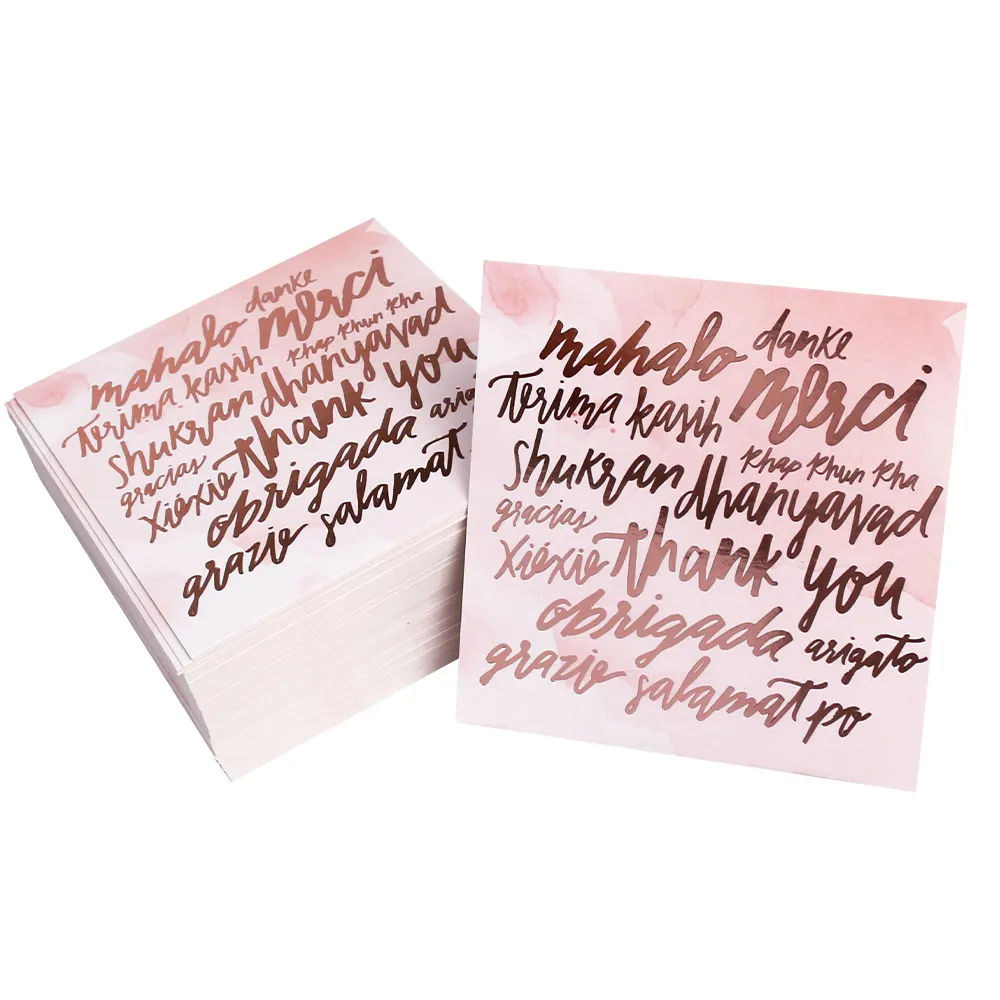 danke
mahalo merci
terima kasih
khap khun kha
shukran dhanyavad
gracias
xiéxie thank you
obrigada arigato
grazie salamat
mahalo danke
terima kasih merci
khap khun kha
shukran dhanyavad
gracias
xiéxie thank you
obrigada arigato
grazie salamat po